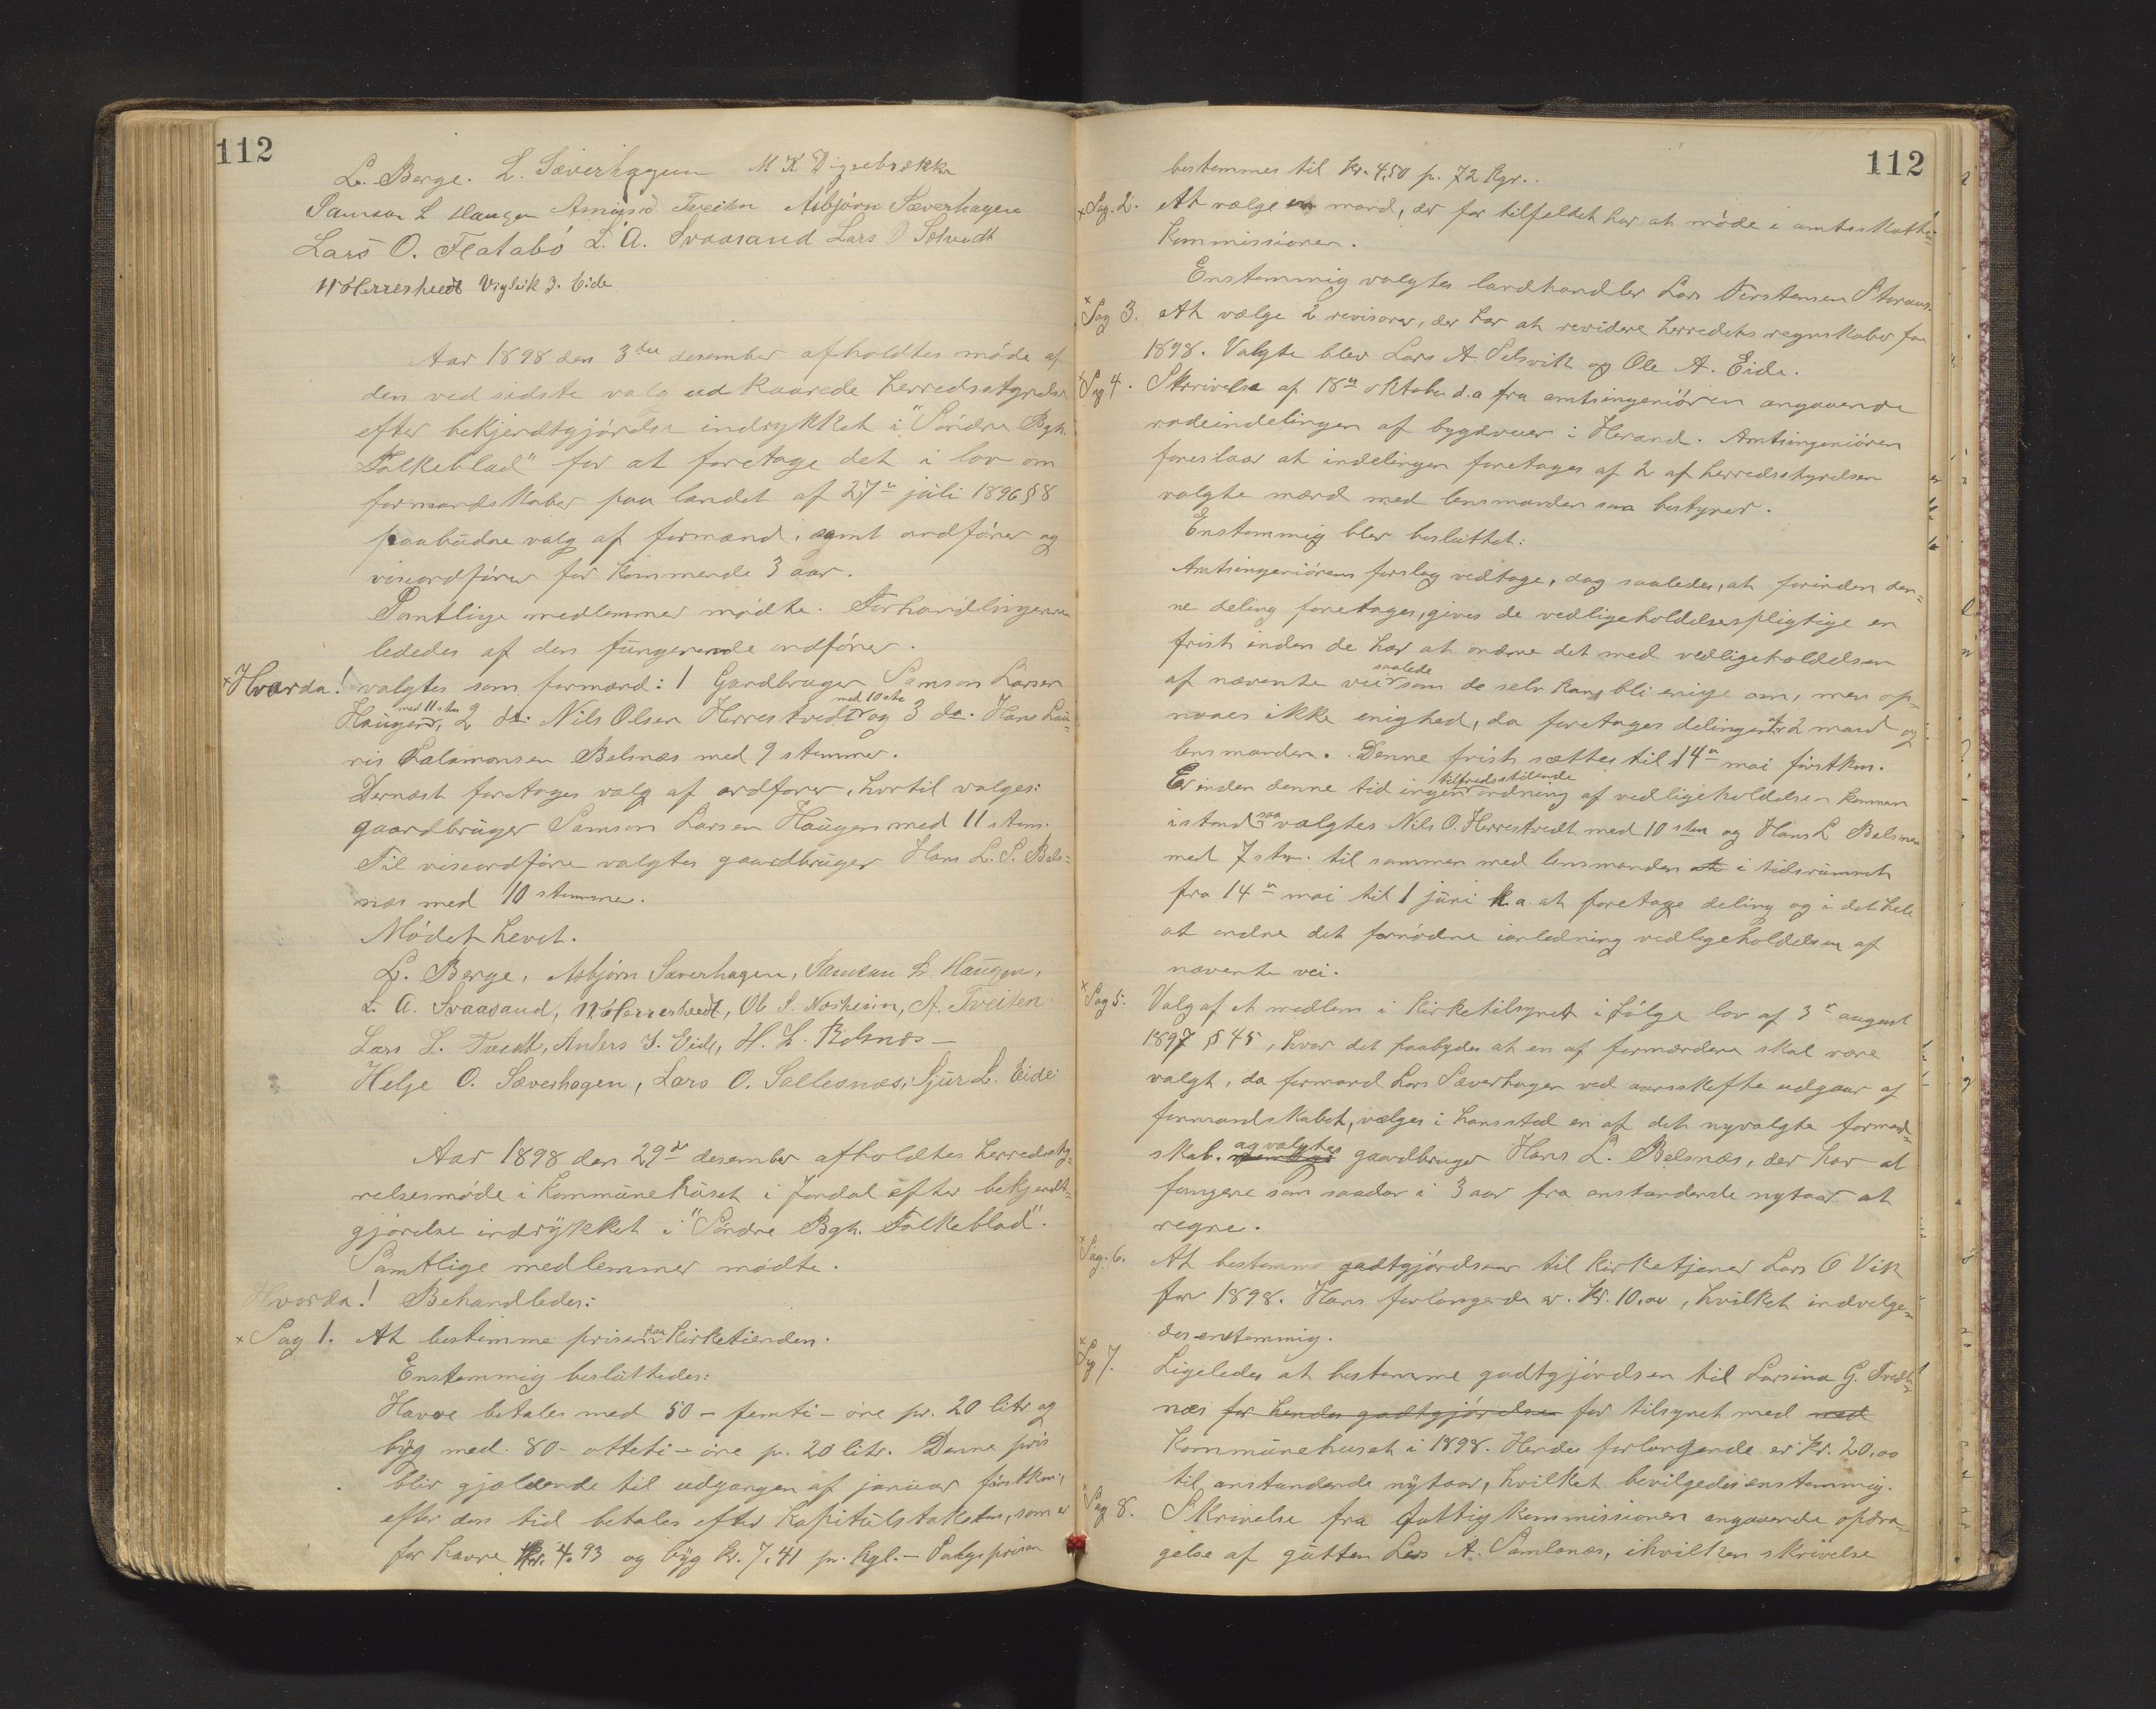 112
L. Berge. L. Sæverhagen M K Digrebrekke
Samson L Haugen Amund Tveiten Asbjørn Sæverhagen
Lars O. Flatabø L. A. Svaasand Lars O Solvedt
N O Herrestvedt Vigleik J. Eide
Aar 1898 den 3die desember afholdtes møde af
den ved sidste valg udkaarede herredsstyrelse
efter bekjendtgjørelse indrykket i "Søndre Bgh.
Folkeblad" for at foretage det i lov om
formandskaber paa landet af 27de juli 1896 § 8
paabudne valg af formænd, samt ordfører og
viseordfører for kommende 3 aar.
Samtlige medlemmer mødte. Forhandlingerne
lededes af den fungerende ordfører.
Hvorda! valgtes som formænd: 1 Gardbruger Samson Larsen
Haugen med 11 ste, 2 do. Nils Olsen Herrestvedt med 10 ste og 3 do. Hans Lau-
ris Salamonsen Belsnæs med 9 stemmer.
Dernæst foretoges valg af ordfører, hvortil valges:
gaardbruger Samson Larsen Haugen med 11 stem.
Til viseordfører valgtes gaardbruger Hans L. S. Bels-
næs med 10 stemmer.
Mødet hevet.
L. Berge, Asbjørn Sæverhagen, Samson L. Haugen,
L. A. Svaasand, N O Herrestvedt, Ole S. Næsheim, A. Tveiten
Lars L. Tvedt, Anders J. Eide, H. L. Belsnæs —
Helje O. Sæverhagen, Lars O. Sallesnæs, Sjur L. Eide
Aar 1898 den 29de desember afholdtes herredssty-
relsesmøde i kommunehuset i Jondal efter bekjendt-
gjørelse indrykket i "Søndre Bgh. Folkeblad".
Samtlige medlemmer mødte.
Hvorda! Behandledes:
Sag 1. At bestemme prisen paa kirketienden.
Enstemmig besluttedes:
Havre betales med 50 - femti - øre pr. 20 litr og
byg med 80 - otteti - øre pr. 20 litr. Denne pris
blir gjældende til udgangen af januar førstkom.,
efter den tid betales efter kapitulstaksten, som er
for havre kr. 4.93 og byg kr. 7.41 pr. hgl. — Salgsprisen
112
bestemmes til kr. 4,50 p. 72 kgr..
Sag. 2. At vælge en mand, der for tilfeldet har at møde i amtsskatte-
kommissionen.
Enstemmig valgtes landhandler Lars Torstensen Storaas.
Sag 3. At vælge 2 revisorer, der har at revidere herredets regnskaber for
1898. Valgte blev Lars A. Selsvik og Ole A. Eide.
Sag 4. Skrivelse af 18de oktober d.a fra amtsingeniøren angaaende
rodeindelingen af bygdeveier i Herand. Amtsingeniøren
foreslaar at indelingen foretages af 2 af herredsstyrelsen
valgte mænd med lensmanden som bestyrer.
Enstemmig blev besluttet:
Amtsingeniørens forslag vedtages, dog saaledes, at forinden den-
ne deling foretages, gives de vedligeholdelsespligtige en
frist inden de har at ordne det med vedligeholdelsen
af nævnte vei saalede som de selv kan bli enige om, men op-
naaes ikke enighed, da foretages delingen af 2 mænd og
lensmanden. Denne frist sættes til 14de mai førstkm.
Er inden denne tid ingen tilfredsstillende ordning af vedligeholdelsen kommen
istand saa valgtes Nils O. Herrestvedt med 10 stem og Hans L Belsnæs
med 7 stm. til sammen med lensmanden at i tidsrummet
fra 14de mai til 1 juni n.a. at foretage deling og i det hele
at ordne det fornødne ianledning vedligeholdelsen af
nævnte vei.
Sag 5. Valg af et medlem i kirketilsynet i følge lov af 3de august
1897 § 45, hvor det paabydes at en af formændene skal være
valgt, da formand Lars Sæverhagen ved aarsskifte udgaar af
formandskabet, vælges i hans sted en af det nyvalgte formand-
skab. og valgtes gaardbruger Hans L. Belsnæs, der har at
fungere som saadan i 3 aar fra anstundende nytaar at
regne.
Sag. 6. At bestemme godtgjørelsen til kirketjener Lars O Vik
for 1898. Hans forlangende er kr. 10.00, hvilket indvilge-
des enstemmig.
Sag 7. Ligeledes at bestemme godtgjørelsen til Larsina G. Tvedt-
næs for hendes godtgjørelse for tilsynet med med
kommunehuset i 1898. Hendes forlangende er kr. 20,00
til anstundende nytaar, hvilket bevilgedes enstemmig.
Sag 8. Skrivelse fra fattigkommissionen angaaende opdra-
gelse af gutten Lars A. Samlanæs, ihvilken skrivelse